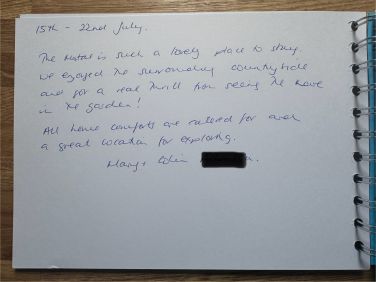 15th - 22nd July.
The is such a lovely place to stay.
We enjoyed the surrounding countryside
and got a real thrill from seeing the
in the garden!
All home comforts are catered for and
a great location for exploring.
Mary +